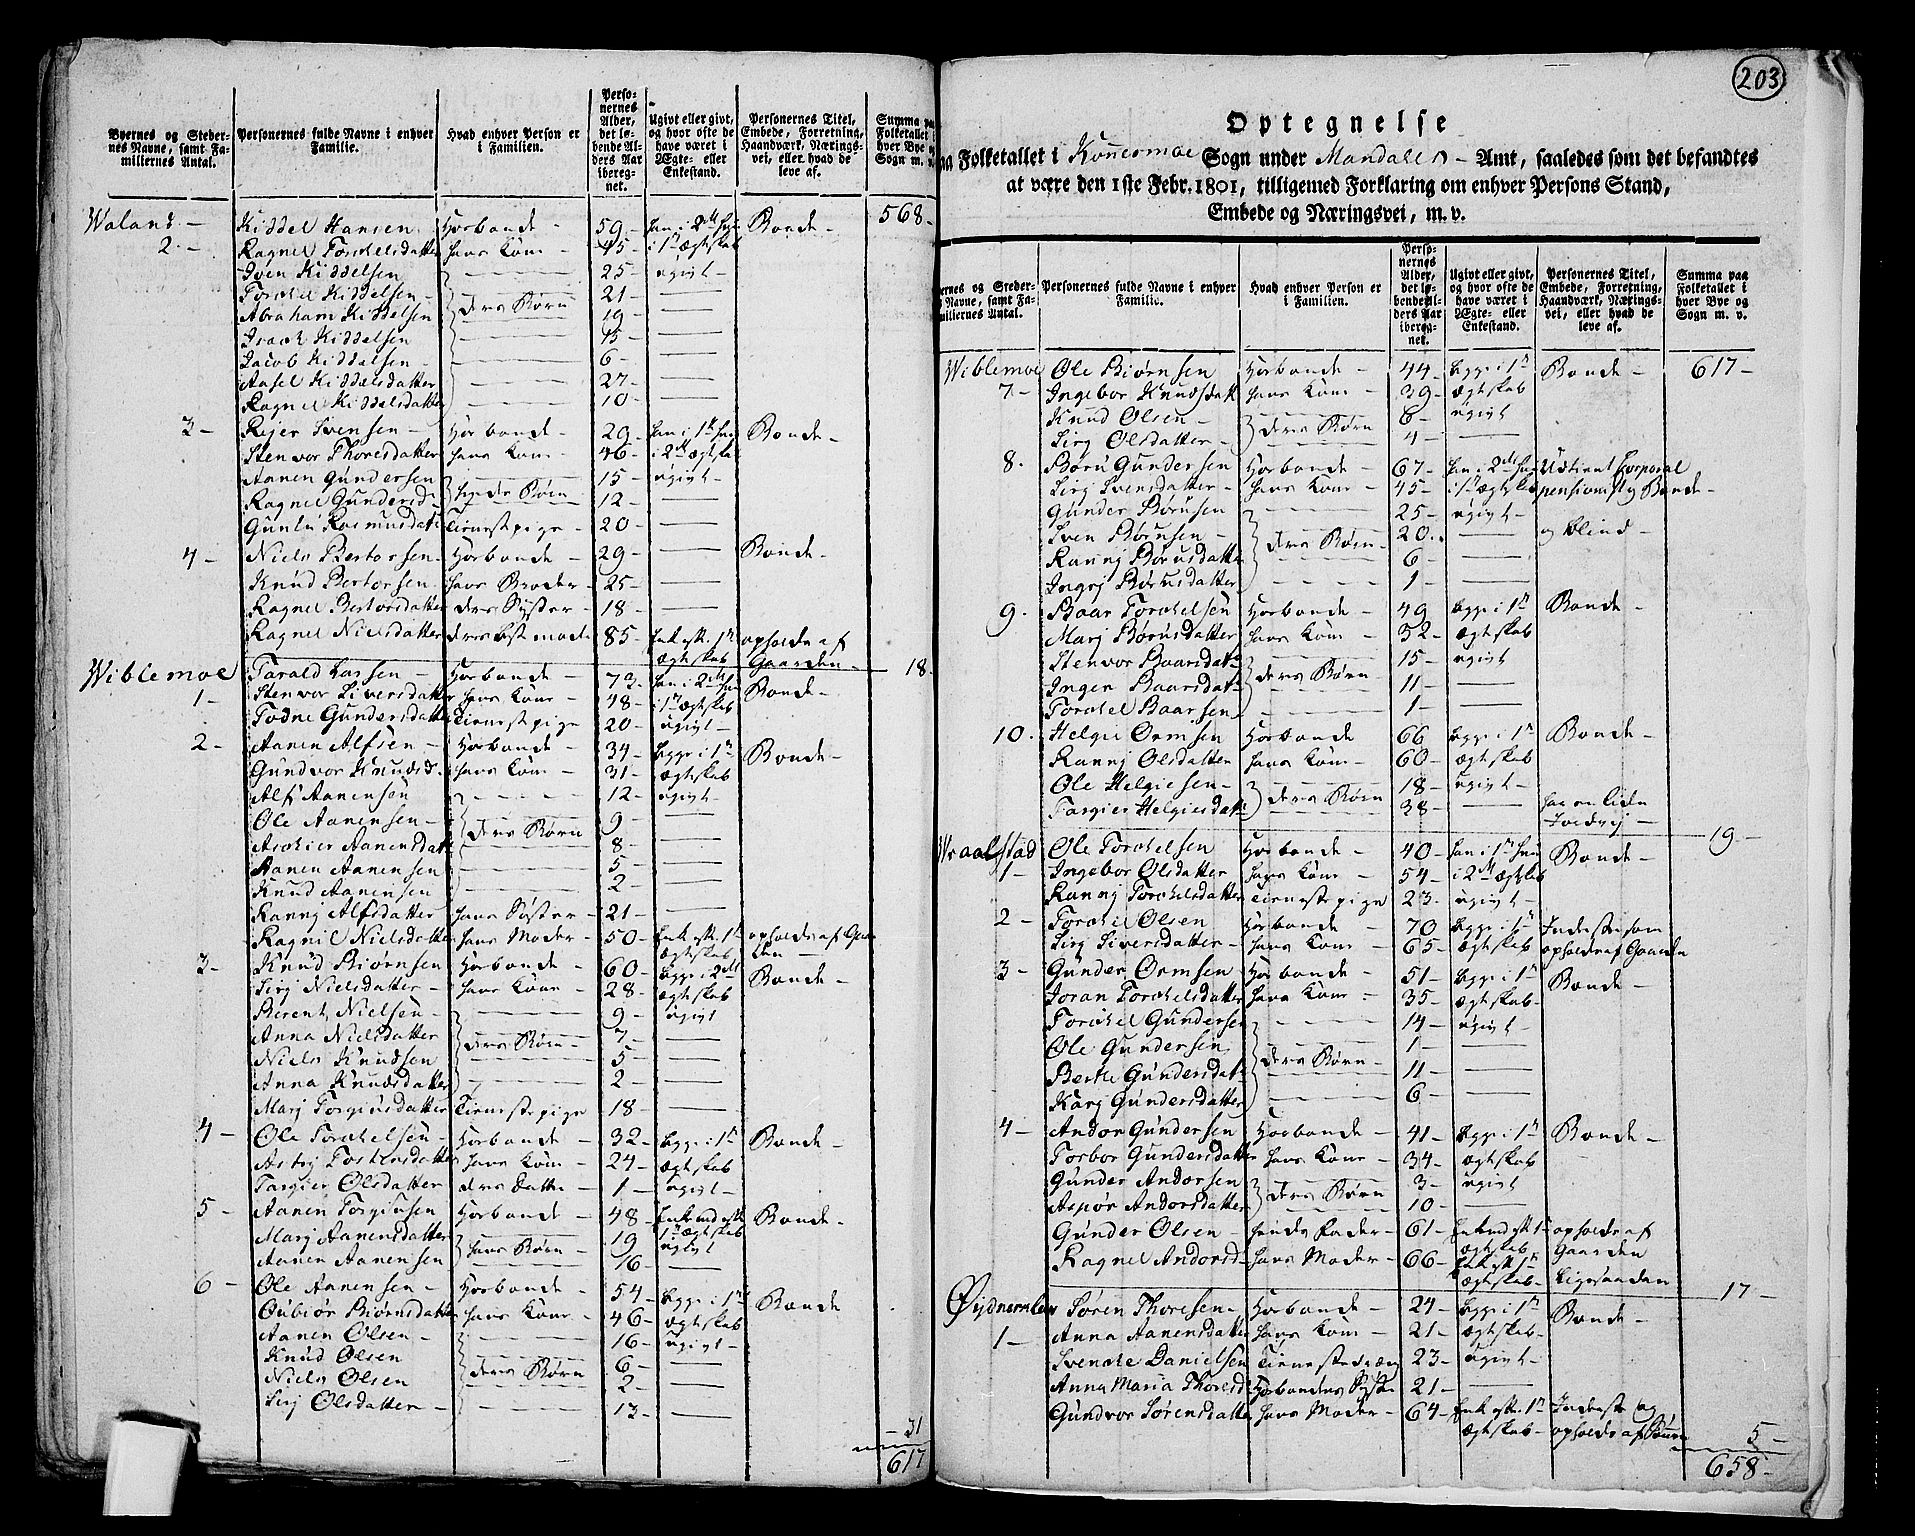 Byernes og Steder-
nes Navne, samt Fa-
miliernes Antal.
Personernes fulde Navne i enhver
Familie.
Hvad enhver Person er
i Familien.
Perso-
nernes
Alder,
det lø-
bende Al-
ders Aar
ibereg-
net.
Ugivt eller givt,
og hvor ofte de
have været i
Ægte- eller
Enkestand.
Personernes Titel,
Embede, Forretning,
Haandværk, Nærings-
vei, eller hvad de
leve af.
Summa paa
Folketallet i
hver Bye og
Sogn m. v.
568-
Waland - Kiddel Hansen Hosbonde 59- han i 2det hun Bonde -
2 - Ragnel Torkelsdatter hans Kone - 45- i 1st ægtskab
Iven Kiddelsen 25- ugivt -
Torkel Kiddelsen - 21 -
Abraham Kiddelsen deres Børn 19 -
Isack Kiddelsen 15 -
Jacob Kiddelsen 6 -
Aasel Kiddelsdatter 27 -
Ragnel Kiddelsdatter 10 -
3 - Rejer Svensen - Hosbonde - 29- han i 1st hun Bonde -
Stenvor Thoresdatter hans Kone - 46- i 2det
Aanen Gundersen 15 - ugivt -
Ragnel Gundersd - Børn 12 -
Gunlu Rasmusdatt Tienestpige - 20 -
4 - Niels Bertorsen - Hosbonde - 29 - Bonde -
Knud Bertorsen hans Broder - 25 -
Ragnel Bertorsdatter deres Syster - 18 -
Ragnel Nielsdatter 85 - Enke eft. 1st opholds af
ægtskab Gaarden -
18 -
Wiblemoe Tarald Larsen - Hosbonde - 73 - han i 2det hun Bonde -
1 - Stenvor Siversdatter hans Kone - 48 - i 1st ægtskab
Todne Gundersdatter Tienestpige 20 - ugivt -
2 - Aanen Alfsen - Hosbonde - 34 - begge i 1st Bonde -
Gundvor Knudsd. hans Kone - 31 - ægtskab
Alf Aanensen 12 - ugivt -
Ole Aanensen - deres Børn 9 -
Aanensdatt 8 -
Aanen Aanensen 5 -
Knud Aanensen 2 -
Ranng Alfsdatter hans Søster - 21 -
Ragnil Nielsdatter hans Moder - 50 - Enke eft. 1st opholds af Gaar
ægtskab den -
3 - Knud Biørnsen Hosbonde - 60 - begge i 2det Bonde -
Sirj Nielsdatter - hans Kone - 28 - ægtskab
Berent Nielsen - 9 - ugivt
Anna Nielsdatter deres Børn 7 -
Niels Knudsen 5 -
Anna Knudsdatter 2 -
Marj Torgiusdatter Tienestepige 18 -
4 - Ole Torkelsen - Hosbonde - 32 - begge i 1st Bonde -
Astrj Tostensdatter hans Kone - 24 - ægtskab
Targier Olsdatter deres Datter - 1 - ugivt -
5 - Aanen Torgiusen Hosbonde - 48 - Enkemd eft Bonde -
Marj Aanensdatter hans Børn 19 1st ægtskab
Aanen Aanensen 16 - ugivt
6 - Ole Aanensen - Hosbonde - 54 - begge i 1st Bonde
Oubiør Biørnsdatter hans Kone - 46 - ægtskab
Aanen Olsen - 16 - ugivt -
Knud Olsen deres Børn 6 -
Niels Olsen 2 -
Sirj Olsdatter - 13 -
31
617
203
Optegnelse
paa Folketallet i Konnesmoe Sogn under Mandahls - Amt, saaledes som det befandtes
at være den 1ste Febr. 1801, tilligemed Forklaring om enhver Persons Stand,
Embede og Næringsvei, m. v.
Byernes og Steder-
nes Navne, samt Fa-
miliernes Antal.
Personernes fulde Navne i enhver
Familie.
Hvad enhver Person er
i Familien.
Perso-
nernes
Alder,
det lø-
bende Al-
ders Aar
ibereg-
net.
Ugivt eller givt,
og hvor ofte de
have været i
Ægte- eller
Enkestand.
Personernes Titel,
Embede, Forretning,
Haandværk, Nærings-
vei, eller hvad de
leve af.
Summa paa
Folketallet i
hver Bye og
Sogn m. v.
Wiblemoe Ole Biørnsen Hosbonde - 44 - begge i 1st Bonde - 617 -
7 - Ingebor Knudsdatt hans Kone - 39 - ægtskab
Knud Olsen - deres Børn 8 - ugivt
Sirj Olsdatter - 4 -
8 - Børu Gundersen Hosbonde - 67 - han i 2det hun Corporal
Sirj Svensdatter - hans Kone - 45 - i 1st ægtskab Bonde -
Gunder Børusen 25 - ugivt -
Sven Børusen - deres Børn 20 - og blind -
Ranng Børusdatter 6 -
Ingrj Børusdatter 1 -
9 - Baar Torkelsen Hosbonde - 49 begge i 1st Bonde -
Marj Børusdatter hans Kone - 32 - ægtskab
Stenvor Baarsdatt 15 - ugivt -
Inger Baarsdatt deres Børn 11 -
Torkel Baarsen 1 -
10 - Helgie Ormsen Hosbonde 66 begge i 1st Bonde -
Ranng Olsdatter hans Kone - 60 - ægtskab
Ole Helgiesen - deres Børn 18 - ugivt -
Targier Helgiesdatt 38 - har en liden
Jordvej -
19 -
Wraalstad Ole Torkelsen Hosbonde - 40 - han i 1st hun Bonde -
1 - Ingebor Olsdatter hans Kone - 54 - i 2det ægtskab
Ranng Torkelsdatter Tienestepige 23 - ugivt -
2 - Torkel Olsen Hosbonde - 70 begge i 1st Inderste som
Sirj Siversdatter - hans Kone - 65 - ægtskab opholds af Gaarden
3 - Gunder Ormsen Hosbonde - 51 - begge i 1st Bonde -
Joran Torkelsdatter hans Kone - 35 - ægtskab -
Torkel Gundersen 14 - ugivt -
Ole Gundersen deres Børn 1 -
Berte Gundersdatt 11 -
Karj Gundersdatter 6 -
4 - Andor Gundersen Hosbonde - 41 - begge i 1st Bonde -
Torbor Gundersdatter hans Kone - 34 - ægtskab
Gunder Andorsen deres Børn 3 - ugivt
Aspør Andorsdatter 10 -
Gunder Olsen - hendes Fader - 61 - Enkemd eft 1st opholds af
ægtskab Gaarden
Ragnel Andorsd - hans Moder - 66 - Enke eft 1st Ligesaaden
ægtskab -
17 -
Øydneml Søren Thoresen - Hosbonde - 24 - begge i 1st Bonde -
1 - Anna Aanensdatter hans Kone - 21 - ægtskab -
Svenke Danielsen Tienestedreng 23 - ugivt -
Anna Maria Thoresd Hosbondens Syster 21 -
Gundvor Sørensdatter hans Moder - 64 - Enke eft. 1st Inderste og
ægtskab - opholds af
5 -
658 -